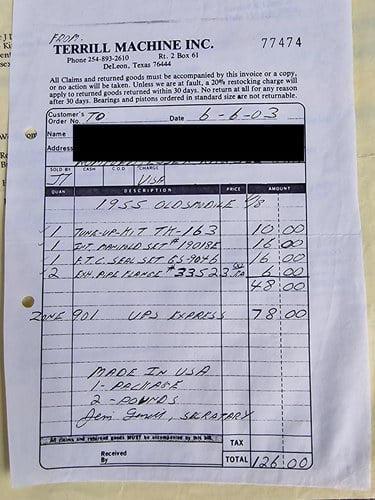 FROM:
TERRILL MACHINE INC.
77474
Phone 254-893-2610 Rt. 2 Box 61
DeLeon, Texas 76444
All Claims and returned goods must be accompanied by this invoice or a copy,
or no action will be taken. Unless we are at fault, a 20% restocking charge will
apply to returned goods returned within 30 days. No return at all for any reason
after 30 days. Bearings and pistons ordered in standard size are not returnable.
Customer's
Order No. TO Date 6-6-03
Name
Address
SOLD BY CASH C.O.D. CHARGE
JT VISA
QUAN. DESCRIPTION PRICE AMOUNT
1955 OLDSMOBILE V/8
1 TUNE-UP-KIT TK-163 10 00
1 INT. MANIFOLD SET #19018E 16 00
1 F.T.C. SEAL SET GS-9046 16 00
2 EXH. PIPE FLANGE #33523 6 00
48 00
ZONE 901 UPS EXPRESS 78 00
MADE IN USA
1- PACKAGE
2- POUNDS
SECRATARY
All claims and returned goods MUST be accompanied by this bill.
TAX
Received
By
TOTAL 126 00